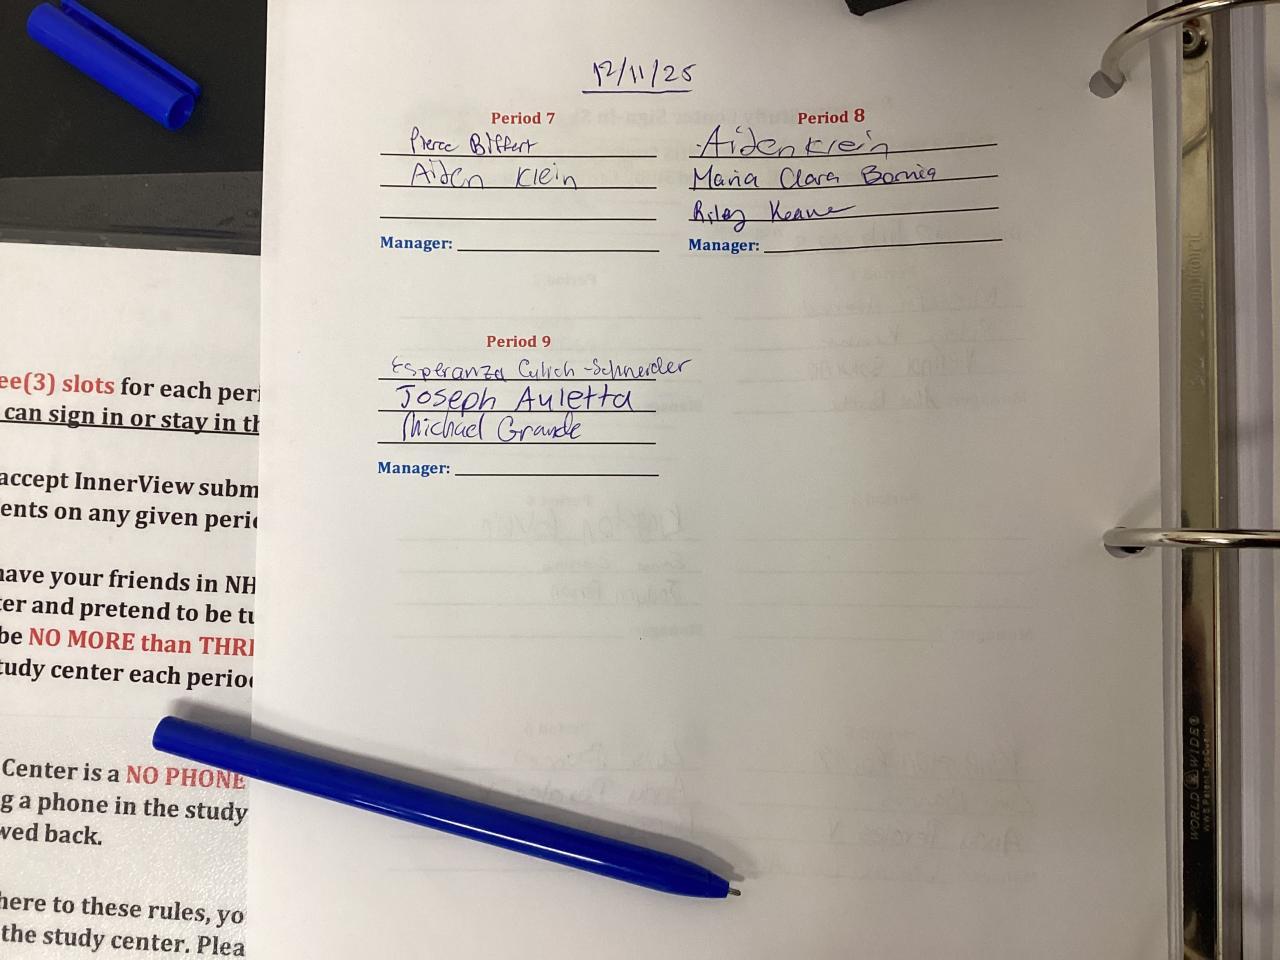 12/11/25
Period 7
Pierce Biffert
Aiden Klein
Manager:
Period 8
Aiden Klein
Maria Clara
Riley Keane
Manager:
Period 9
Esperanza Culich-Schneider
Joseph Auletta
Michael Grande
Manager:
ee(3) slots for each peri
can sign in or stay in th
accept InnerView subm
ents on any given peri
have your friends in NH
ter and pretend to be tu
be NO MORE than THRE
tudy center each perio
Center is a NO PHONE
g a phone in the study
wed back.
here to these rules, yo
the study center. Plea
WORLD WIDE